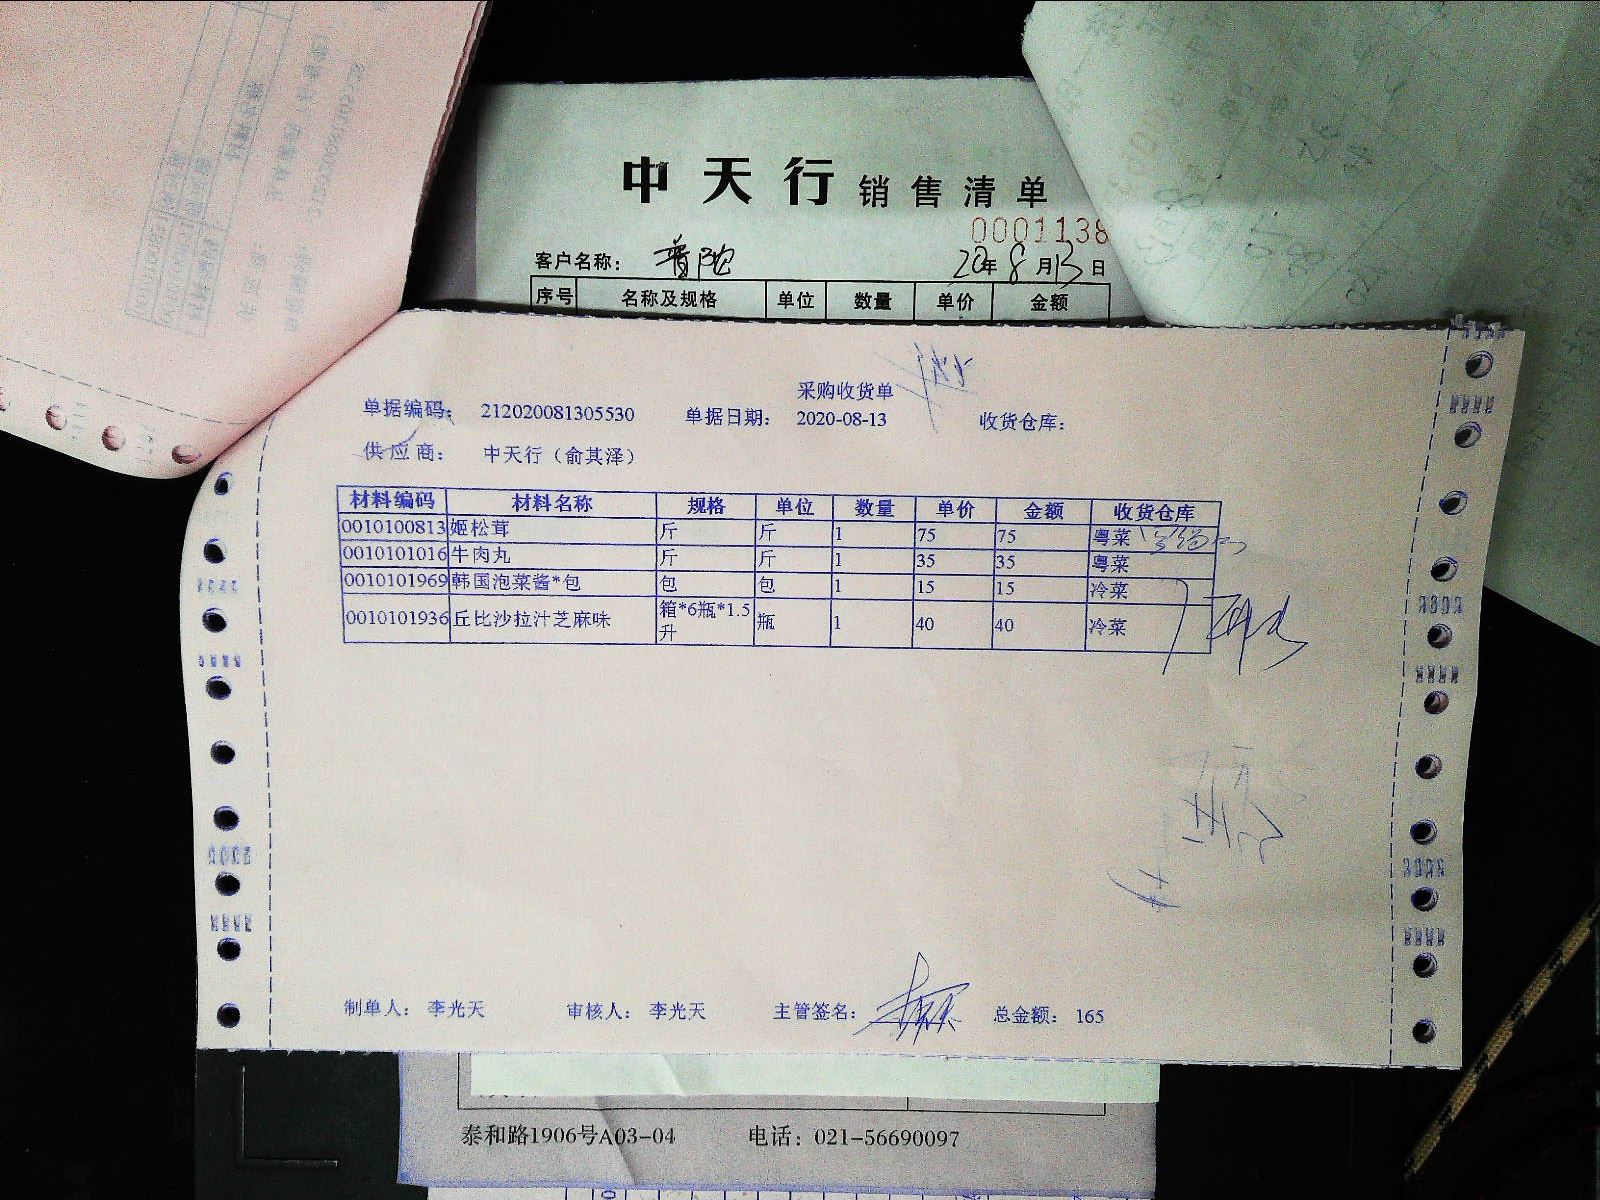 中天行销售清单
0001138
客户名称： 普陀 20年8月13日
序号 名称及规格 单位 数量 单价 金额
采购收货单
单据编码： 212020081305530 单据日期： 2020-08-13 收货仓库：
供应商： 中天行（俞其泽）
材料编码 材料名称 规格 单位 数量 单价 金额 收货仓库
0010100813 姬松茸 斤 斤 1 75 75 粤菜
0010101016 牛肉丸 斤 斤 1 35 35 粤菜
0010101969 韩国泡菜酱*包 包 包 1 15 15 冷菜
0010101936 丘比沙拉汁芝麻味 箱*6瓶*1.5升 瓶 1 40 40 冷菜
制单人： 李光天 审核人： 李光天 主管签名： 总金额： 165
泰和路1906号A03-04 电话：021-56690097